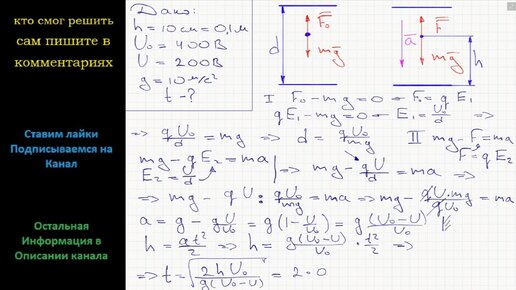 кто смог решить
сам пишите в
комментариях
Ставим лайки
Подписываемся на
Канал
Остальная
Информация в
Описании канала
Дано:
h = 10 см = 0,1 м
U₀ = 400 В
U = 200 В
g = 10 м/с²
t - ?
d
F₀
mg
a
F
mg
h
I F₀ - mg = 0 F₀ = q E₁
qE₁ - mg = 0 E₁ = U₀/d ⇒
⇒ qU₀/d = mg ⇒ d = qU₀/mg II mg - F = ma
F = qE₂
mg - qE₂ = ma
E₂ = U/d
mg - qU/d = ma ⇒
⇒ mg - qU : qU₀/mg = ma ⇒ mg - qU·mg/qU₀ = ma
a = g - gU/U₀ = g(1 - U/U₀) = g(U₀-U)/U₀
h = at²/2 ⇒ h = g(U₀-U)/U₀ · t²/2 ⇒
⇒ t = √2hU₀/g(U₀-U) = 2·0